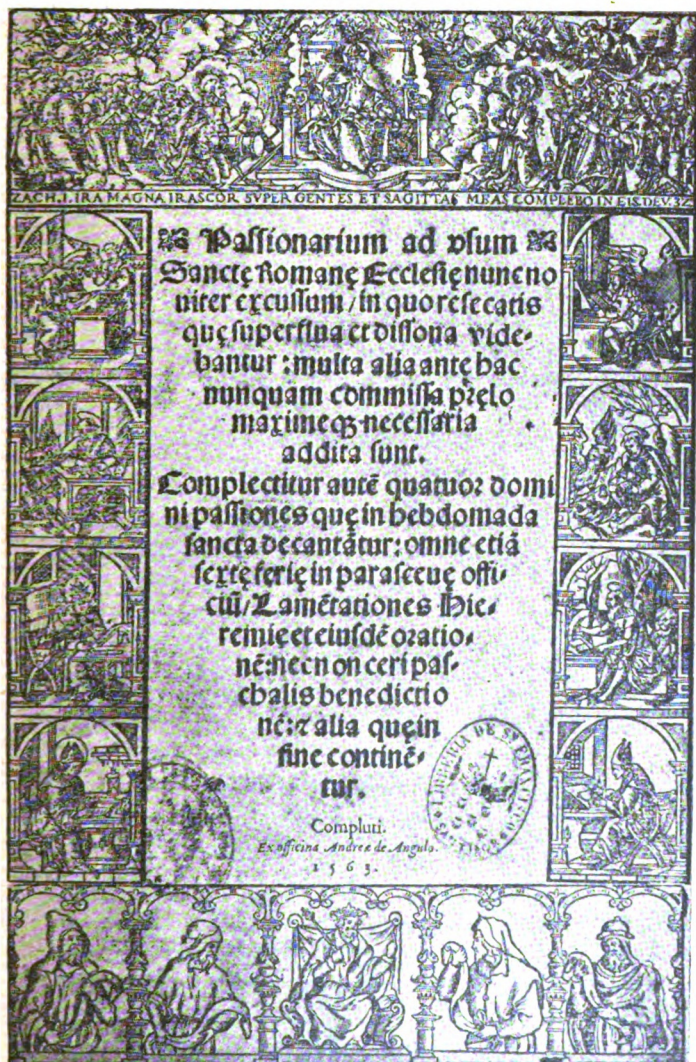 ZACH.I. IRA MAGNA IRASCOR SVPER GENTES ET SAGITTAS MEAS COMPLEBO IN EIS. DEV. 32
Paſſionarium ad vſum
Sanctę Romanę Eccleſię nunc no
uiter excuſſum / in quo reſecatis
quę ſuperflua et diſſona vide-
bantur : multa alia ante hac
nunquam commiſſa pręlo
maximeqꝫ neceſſaria
addita ſunt.
Complectitur autē quatuor domi
ni paſſiones quę in hebdomada
ſancta decantātur: omne etiā
ſextę ferię in paraſceue offi-
ciū / Lamētationes Hie-
remię et eiuſdē oratio-
nē: necnon cerei paſ-
chalis benedictio
nē: ⁊ alia quę in
fine continē-
tur.
Compluti.
Ex officina Andreæ de Angulo.
1563.
LIBRERIA DE